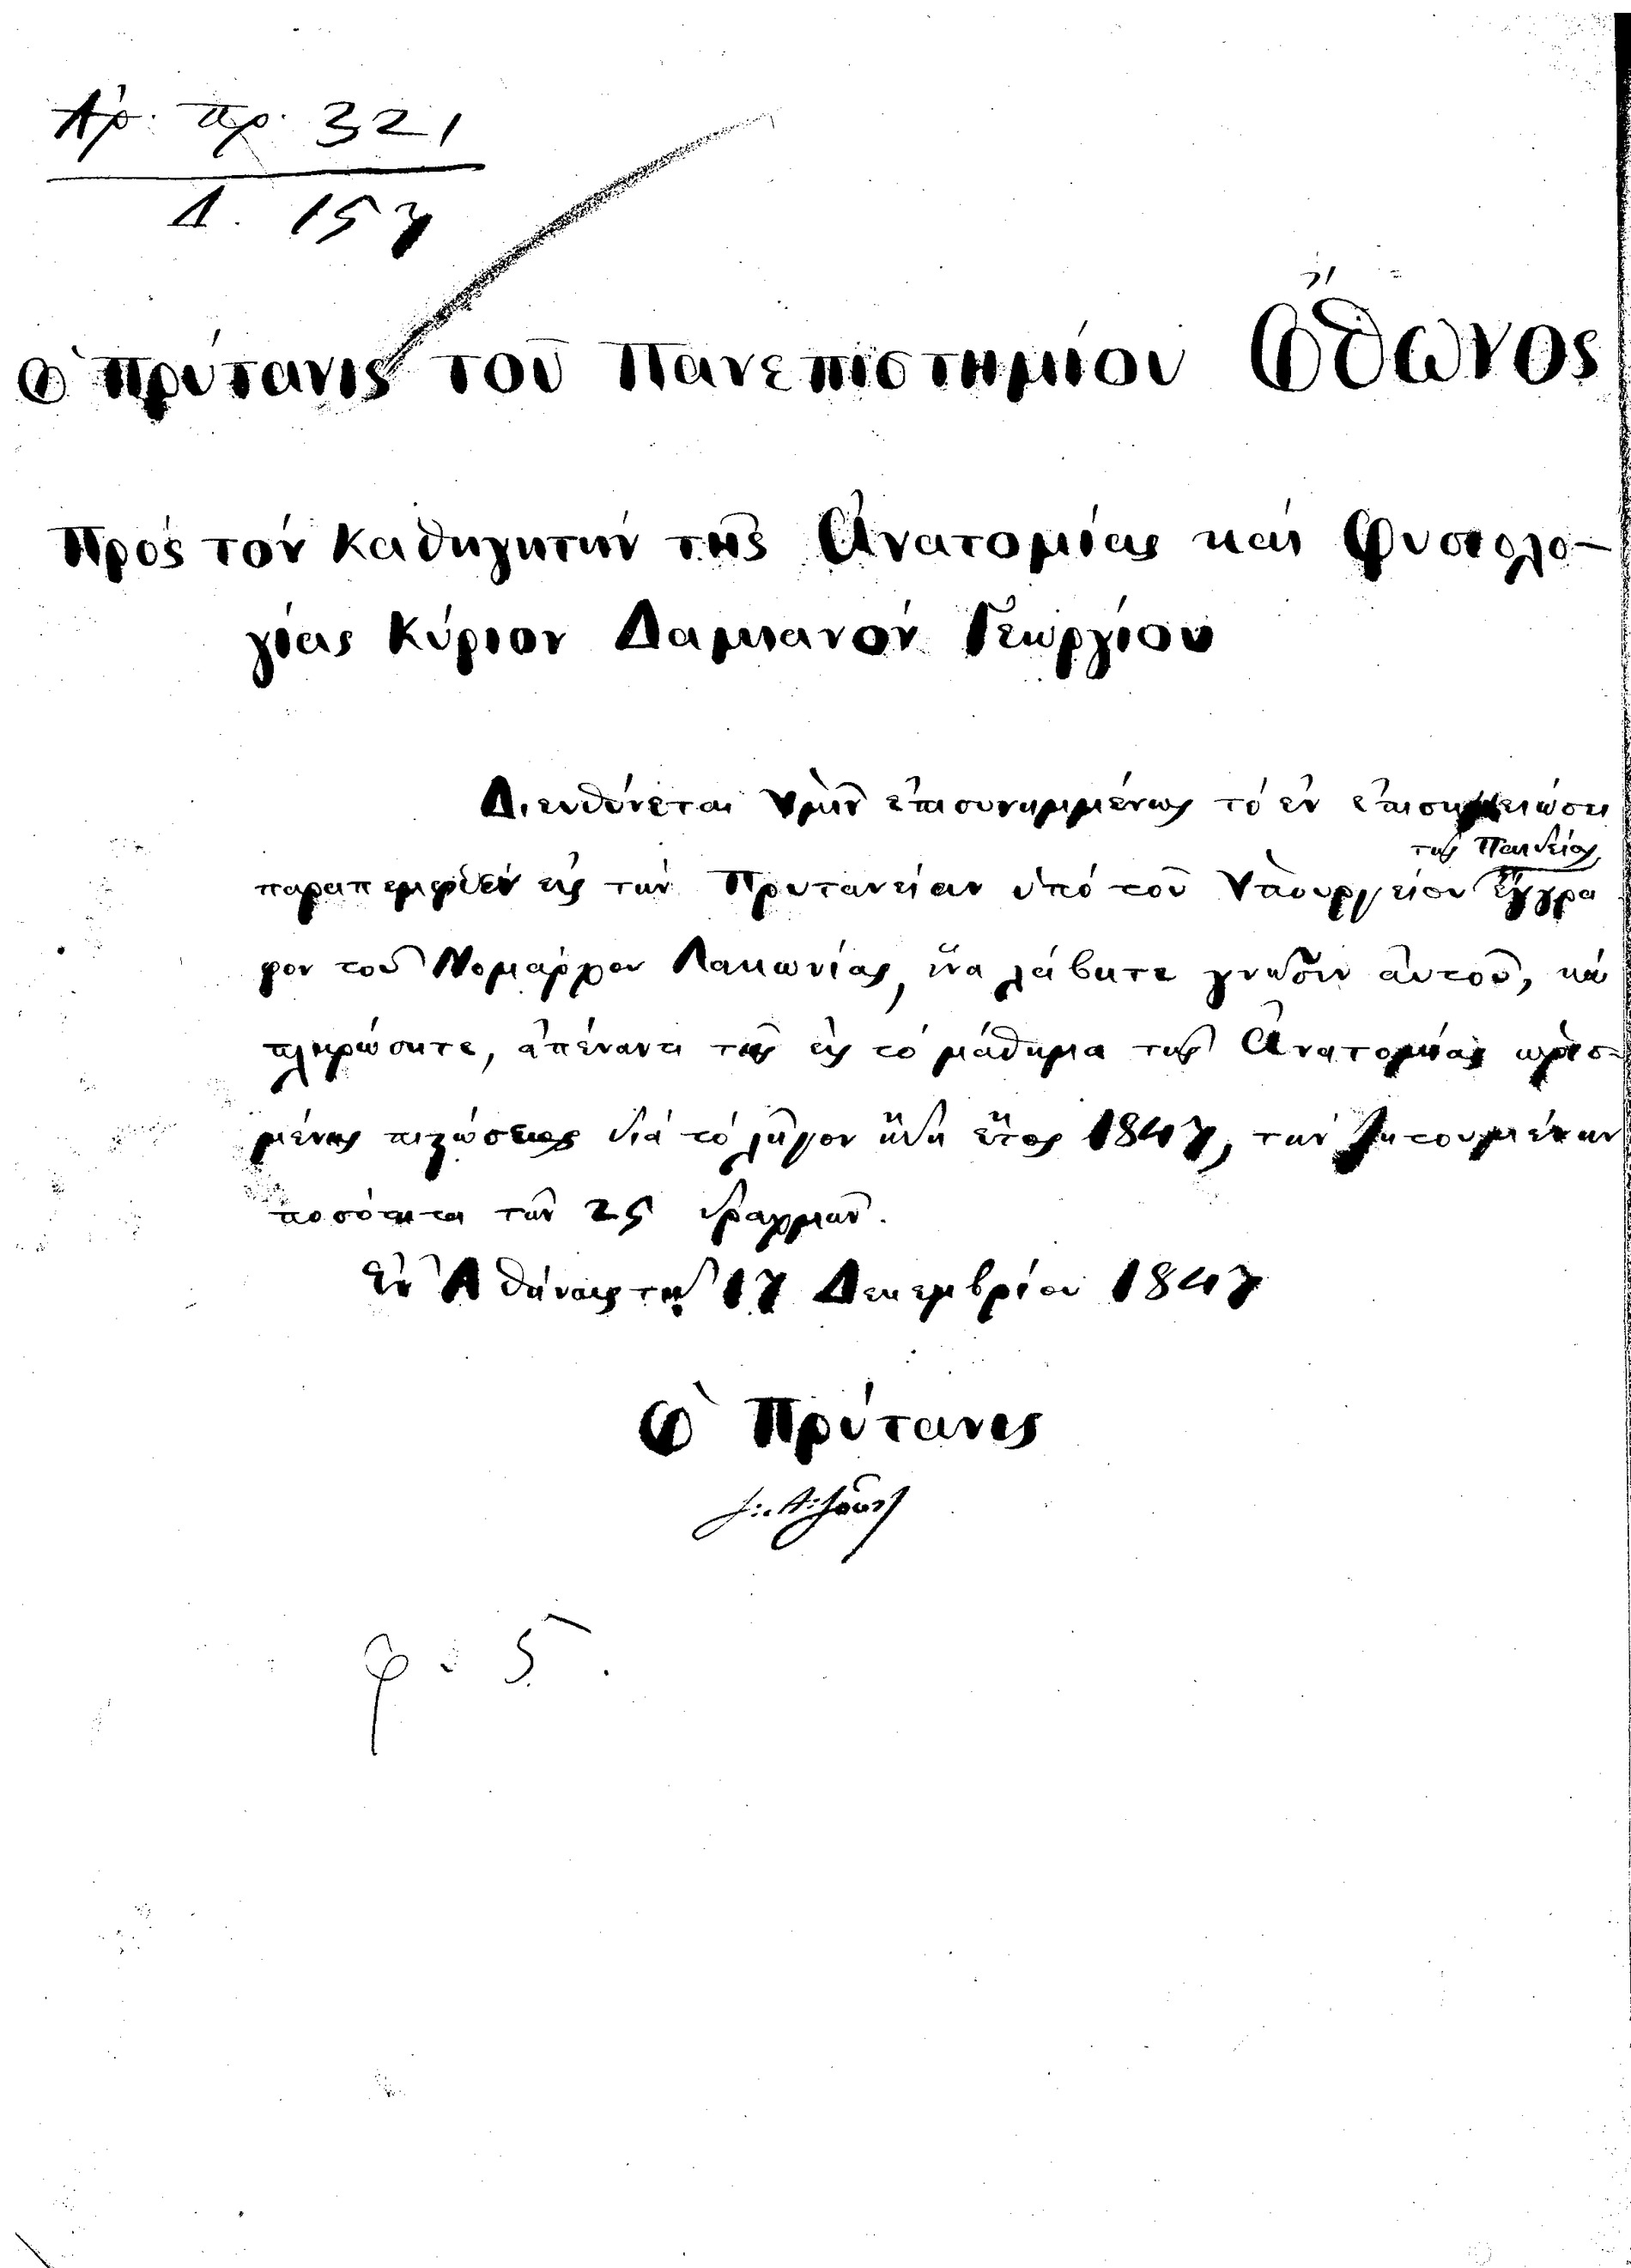 Ἀρ. πρ. 321
Δ. 157
Ὁ Πρύτανις τοῦ Πανεπιστημίου Ὄθωνος
Πρός τόν Καθηγητήν τῆς Ἀνατομίας καί Φυσιολο-
γίας Κύριον Δαμιανόν Γεωργίου
Διευθύνεται Ὑμῖν ἐπισυνημμένως τό ἐν ἐπισημειώσει
τῆς Παιδείας
παραπεμφθέν εἰς τήν Πρυτανείαν ὑπό τοῦ Ὑπουργείου ἔγγρα
φον τοῦ Νομάρχου Λακωνίας, ἵνα λάβητε γνῶσιν αὐτοῦ, κα
πληρώσητε, ἀπέναντι τῆς εἰς τό μάθημα τῆς Ἀνατομίας ὡρισ-
μένης πιστώσεως διά τό λῆγον ἤδη ἔτος 1847, τήν ζητουμένην
ποσότητα τῶν 25 δραχμῶν.
Ἐν Ἀθήναις τῇ 17 Δεκεμβρίου 1847
Ὁ Πρύτανις
φ. 5.